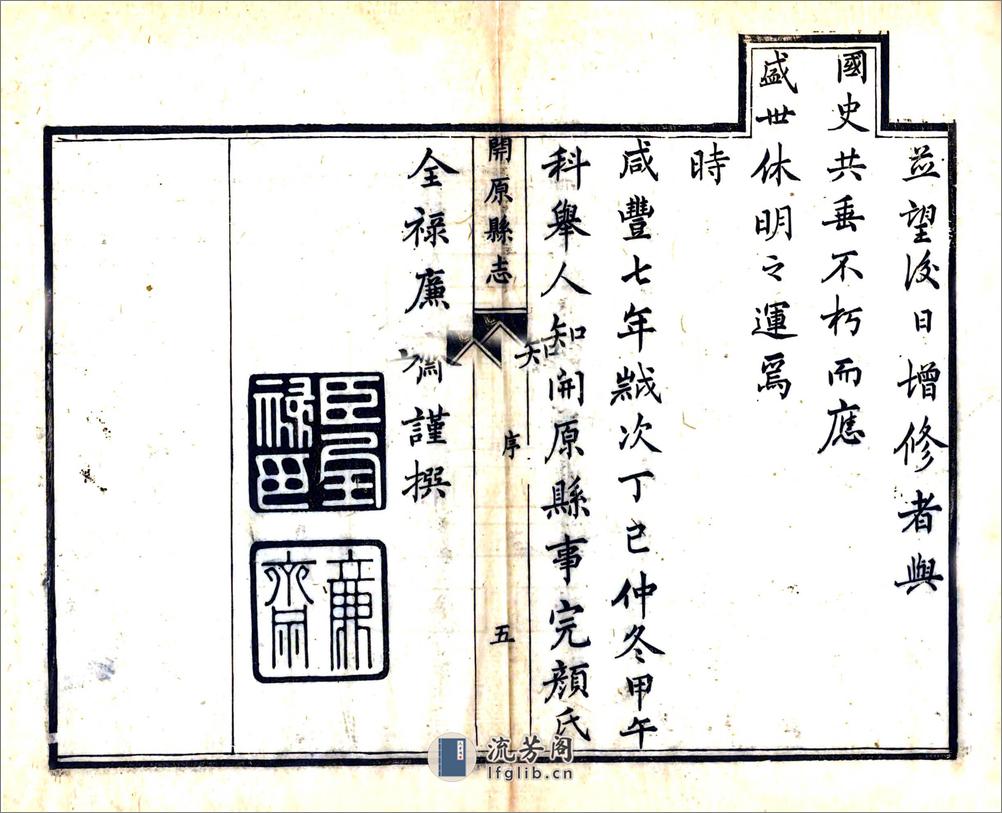 並望後日增修者與
國史共垂不朽而應
盛世休明之運焉
時
咸豐七年歲次丁巳仲冬甲午
科舉人知開原縣事完顏氏
開原縣志
序
五
全祿廉齋謹撰
臣全祿印
廉齋
流芳阁
lfglib.cn